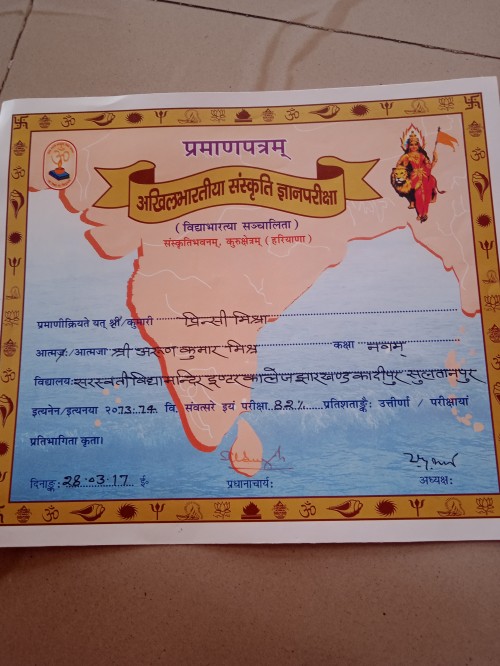 प्रमाणपत्रम्
अखिलभारतीया संस्कृति ज्ञानपरीक्षा
(विद्याभारत्या सञ्चालिता)
संस्कृतिभवनम्, कुरुक्षेत्रम् (हरियाणा)
प्रमाणीक्रियते यत् श्री/कुमारी प्रिन्सी मिश्रा
आत्मजः/आत्मजा श्री अरूण कुमार मिश्र कक्षा नवम्
विद्यालयः सरस्वती विद्या मन्दिर इण्टर कालेज झारखण्ड कादीपुर सुल्तानपुर
इत्यनेन/इत्यनया २०73-74 वि. संवत्सरे इयं परीक्षा 82% प्रतिशताङ्कैः उत्तीर्णा / परीक्षायां
प्रतिभागिता कृता।
दिनाङ्कः 28.03.17 ई. प्रधानाचार्यः अध्यक्षः